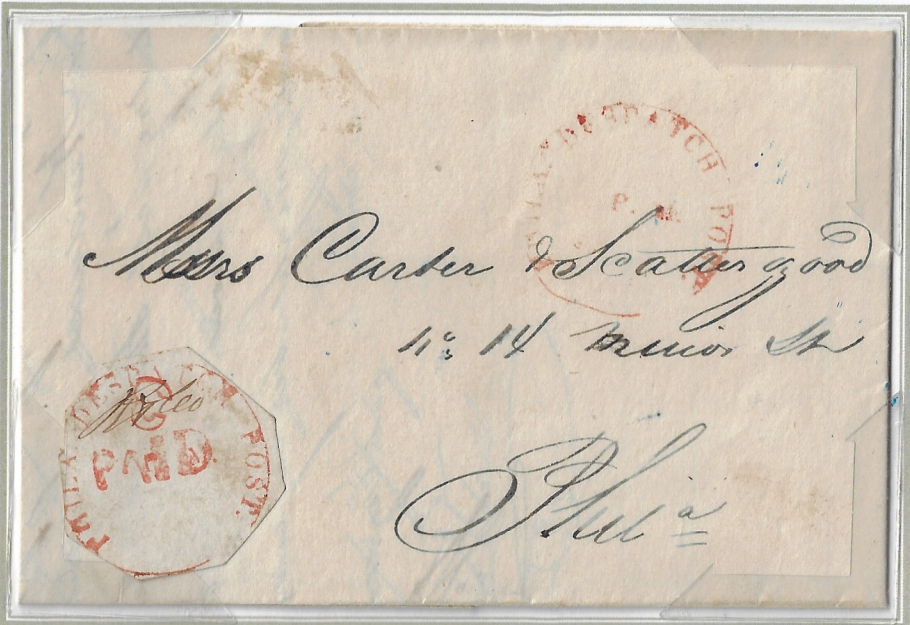 PHILA DESPATCH POST
P. M.
Messrs Carter & Scattergood
No 14 Minor St
Phila
PHILA DESPATCH POST.
3
PAID